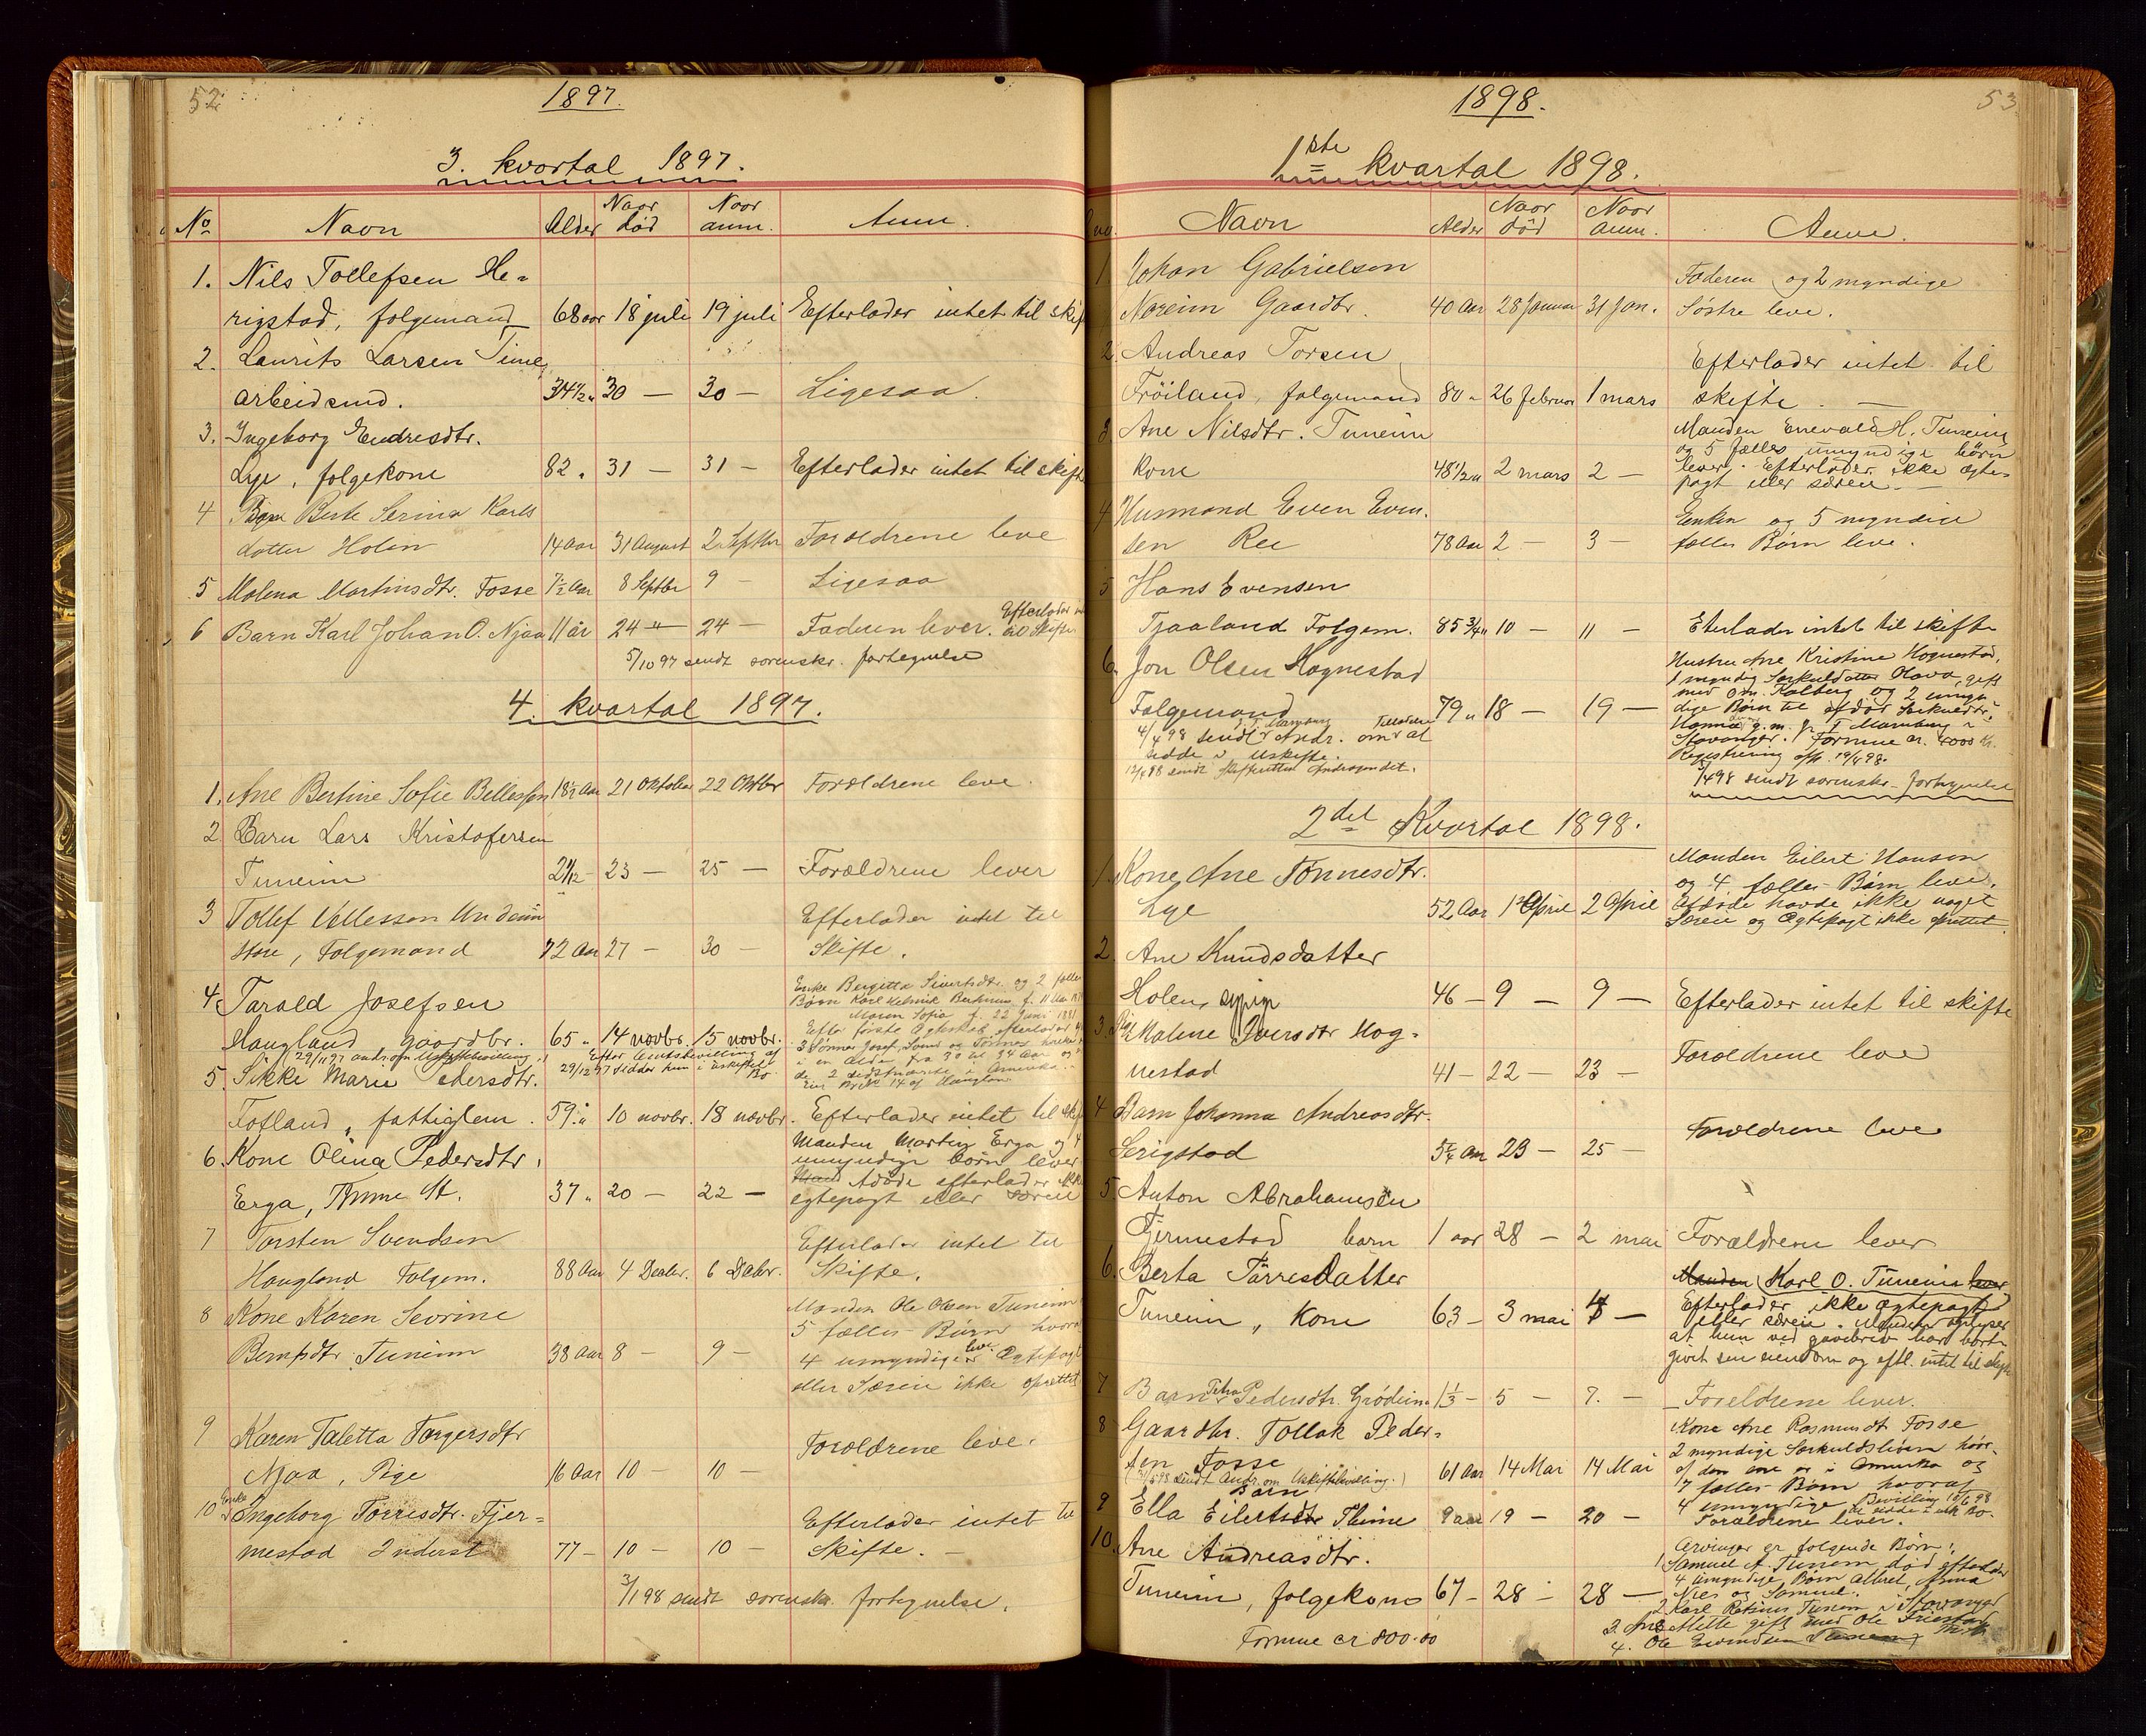 52
1897.
3. kvartal 1897.
No Navn Alder Naar død Naar anm. Anm.
1. Nils Tollefsen He-
rigstad, folgemand 68 aar 18 juli 19 juli Efterlader intet til skif
2. Laurits Larsen Time
arbeidsmd. 34 1/2 " 30 — 30 — Ligesaa.
3. Ingeborg Endresdtr.
Lye, folgekone 82 " 31 — 31 — Efterlader intet til skift
4 Berte Serina Karls
datter Holen 14 Aar 31 August 2 Septbr Forældrene leve
5 Malena Martinsdtr. Fosse 7 1/2 Aar 8 Septbr 9 — Ligesaa
6 Barn Karl Johan O. Njaa 11 år 24 " 24 — Faderen lever. Efterlader
til Skifte
5/10 97 sendt sorenskr. fortegnelse
4. kvartal 1897.
1. Ane Bertine Sofie Bellesen 18 1/2 Aar 21 Oktober 22 Oktbr Forældrene leve
2 Barn Lars Kristofersen
Tuneim 2 1/12 — 23 — 25 — Forældrene lever
3 Tollef Vellesson Undeim
Store, Folgemand 72 Aar 27 — 30 — Efterlader intet til
Skifte.
4. Tarald Josefsen
Haugland gaardbr. 65 " 14 novbr. 15 novbr.
Enke Bergitta Sivertsdtr. og 2 fælles
Børn Karl
Maren Sofia f. 22 Juni 1881
Efter første Ægteskab efterlader
3 Sønner Josef,
i en Alder fra 30 til 34 Aar og
de 2 i Amerika
Brik 14 af Haugland
5. Sikke Marie Pedersdtr.
Fotland, fattiglem. 59 " 10 novbr. 18 novbr. Efterlader intet til skif
6. Kone Olina Pedersdtr.
Erga, Time St. 37 " 20 — 22 —
Manden Martin Erga og 4
umyndige børn lever
Afdøde efterlader ikke
egtepagt eller særeie
7 Torsten Svendsen
Haugland Folgem. 88 Aar 4 Decbr. 6 Decbr. Efterlader intet til
Skifte.
8 Kone Karen Severine
Berntsdtr. Tuneim 38 Aar 8 — 9 —
Manden Ole Olsen Tuneim
5 fælles Børn hvoraf
4 umyndige leve. Ægtepagt
eller Særeie ikke oprettet
9 Karen Taletta Torgersdtr
Njaa, Pige 16 Aar 10 — 10 — Forældrene leve.
10 Enke Ingeborg Torrisdtr. Fjer-
mestad Inderst 77 — 10 — 10 — Efterlader intet til
Skifte. —
3/1 98 sendt sorenskr. fortegnelse.
53
1898.
1ste kvartal 1898.
Navn Alder Naar død Naar anm. Anm.
1 Johan Gabrielsen
Nareim Gaardbr. 40 Aar 28 Januar 31 Jan. Faderen og 2 myndige
Søstre leve.
2. Andreas Torsen
Fröiland, folgemand 80 " 26 februar 1 mars Efterlader intet til
skifte. —
3 Ane Nilsdtr. Tuneim
kone 48 1/2 " 2 mars 2 —
Manden Enevald H. Tuneim
og 5 fælles umyndige børn
lever. Efterlader ikke ægte-
pagt eller særeie —
4 Husmand Even Even-
sen Ree 78 Aar 2 — 3 — Enken og 5 myndige
fælles Børn leve.
5 Hans Evensen
Tjaaland Folgem. 85 3/4 " 10 — 11 — Eterlader intet til skifte
6. Jon Olsen Hognestad
Folgemand 79 " 18 — 19 —
Hustru Ane Kristine Hognestad,
1 myndig Særkuldsdatter Olava, gift
med Om. Kalberg og 2 umyn
dige Børn til afdød Særkuldsdtr.
Hanna g.m. J. T. Marnburg i
Stavanger. Formue cr. 4000 kr.
Registrering 19/4 98.
4/4 98 sendt Andr. om Tilladelse at
sidde i Uskifte.
12/4 98 sendt
2/4 98 sendt sorenskr. fortegnelse
2det Kvartal 1898.
1. Kone Ane Tonnesdtr.
Lye 52 Aar 1 April 2 April
Manden Eilert Hansen
og 4 fælles Børn leve.
Afdøde havde ikke noget
Særeie og Ægtepagt ikke oprettet.
2. Ane Knudsdatter
Holen, sypige 46 — 9 — 9 — Efterlader intet til skifte
3. Pige Malene Iversdtr Hog-
nestad 41 — 22 — 23 — Forældrene leve
4 Barn Johanna Andreasdtr.
Serigstad 5 1/4 Aar 23 — 25 — Forældrene leve
5 Anton Abrahamsen
Fjermestad barn 1 aar 28 — 2 mai Forældrene lever
6. Berta Tarresdatter
Tuneim, Kone 63 — 3 mai 4 —
Manden Karl O. Tuneim lever
Efterlader ikke ægtepagt
eller særeie. Manden oplyser
at hun ved gavebrev har bort-
givet sin eiendom og eftl. intet til skifte
7 Barn Petra Pedersdtr. Grödeim 1 1/3 — 5 — 7. — Forældrene lever.
8 Gaardbr. Tollak Peder-
sen Fosse 61 Aar 14 Mai 14 Mai
(21/5 98 sendt Andr. om Uskiftebevilling.)
Kone Ane Rasmusdt Fosse
2 myndige Særkuldsbörn hvor-
af den ene er i Amerika og
7 fælles Börn hvoraf
4 umyndige. Bevilling 10/6 98
at sidde i usk. Bo.
9 Ella Eilertsdtr Thime Barn 9 aar 19 — 20 — Forældrene lever.
10. Ane Andreasdtr.
Tuneim, folgekone 67 — 28 — 28 —
Arvinger er folgende Børn:
1 Samuel A. Tunem død efterlader
4 umyndige Børn Albret, Anna
Nils og Samuel.
2 Karl Tunem i Stavanger
3. Ane Mette gift med Ole Friestad
4. Ole Eivindsen Tunem
Formue cr 800.00